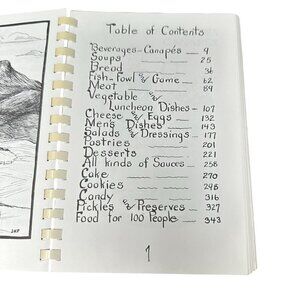 Table of Contents
Beverages-Canapés — 9
Soups — 25
Bread — 36
Fish-Fowl & Game — 62
Meat — 84
Vegetable &
Luncheon Dishes - 107
Cheese & Eggs — 132
Mens Dishes — 143
Salads & Dressings — 177
Pastries — 201
Desserts — 221
All Kinds of Sauces — 258
Cake — 270
Cookies — 295
Candy — 316
Pickles & Preserves — 327
Food for 100 People — 343
1